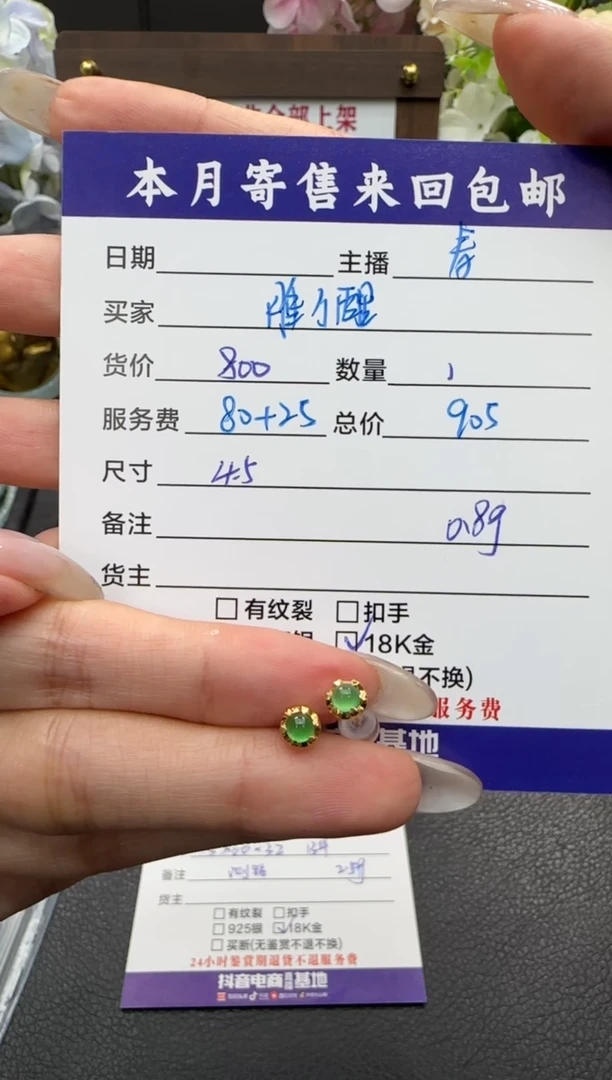 全部上架
本月寄售来回包邮
日期 主播 春
买家
货价 800 数量 1
服务费 80+25 总价 905
尺寸 4.5
备注 0.89
货主
□有纹裂 □扣手
☑18K金
不换)
服务费
基地
备注
货主
□有纹裂 □扣手
□925银 ☑18K金
□买断(无鉴赏不退不换)
24小时鉴赏期退货不退服务费
抖音电商直播基地